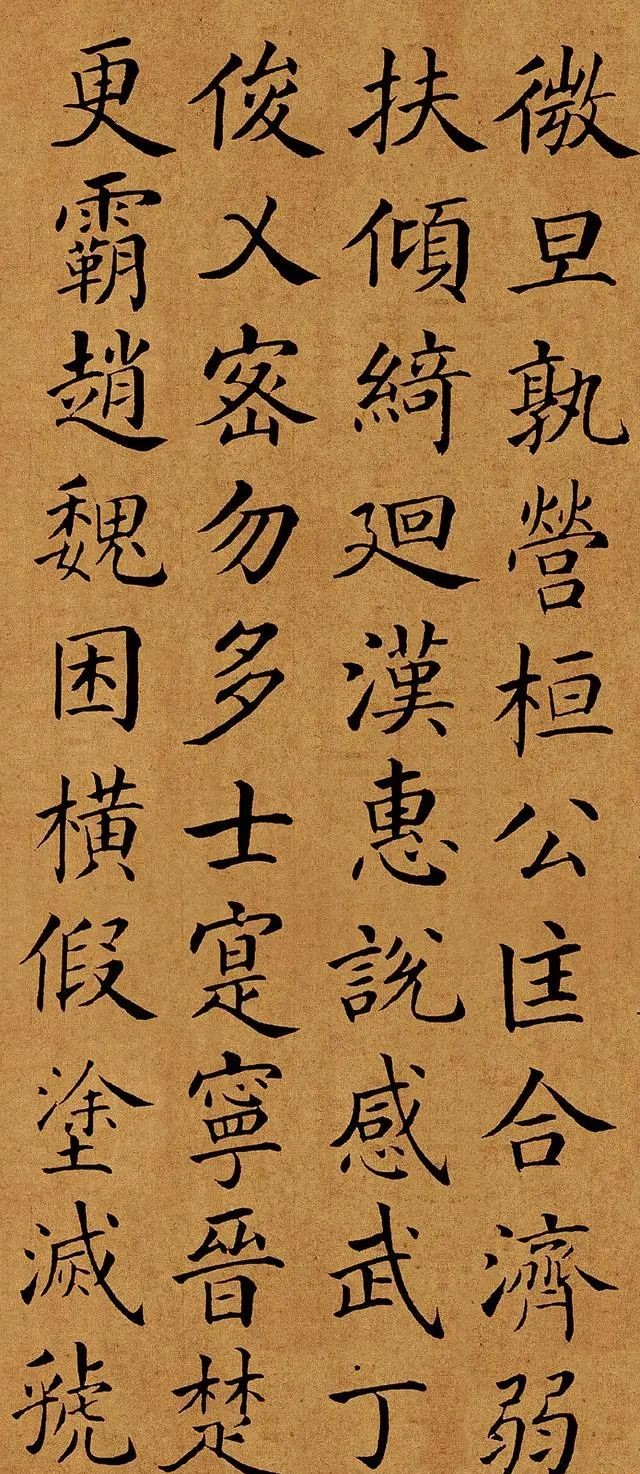 微旦孰營桓公匡合濟弱
扶傾綺廻漢惠說感武丁
俊乂密勿多士寔寧晉楚
更霸趙魏困橫假塗滅虢